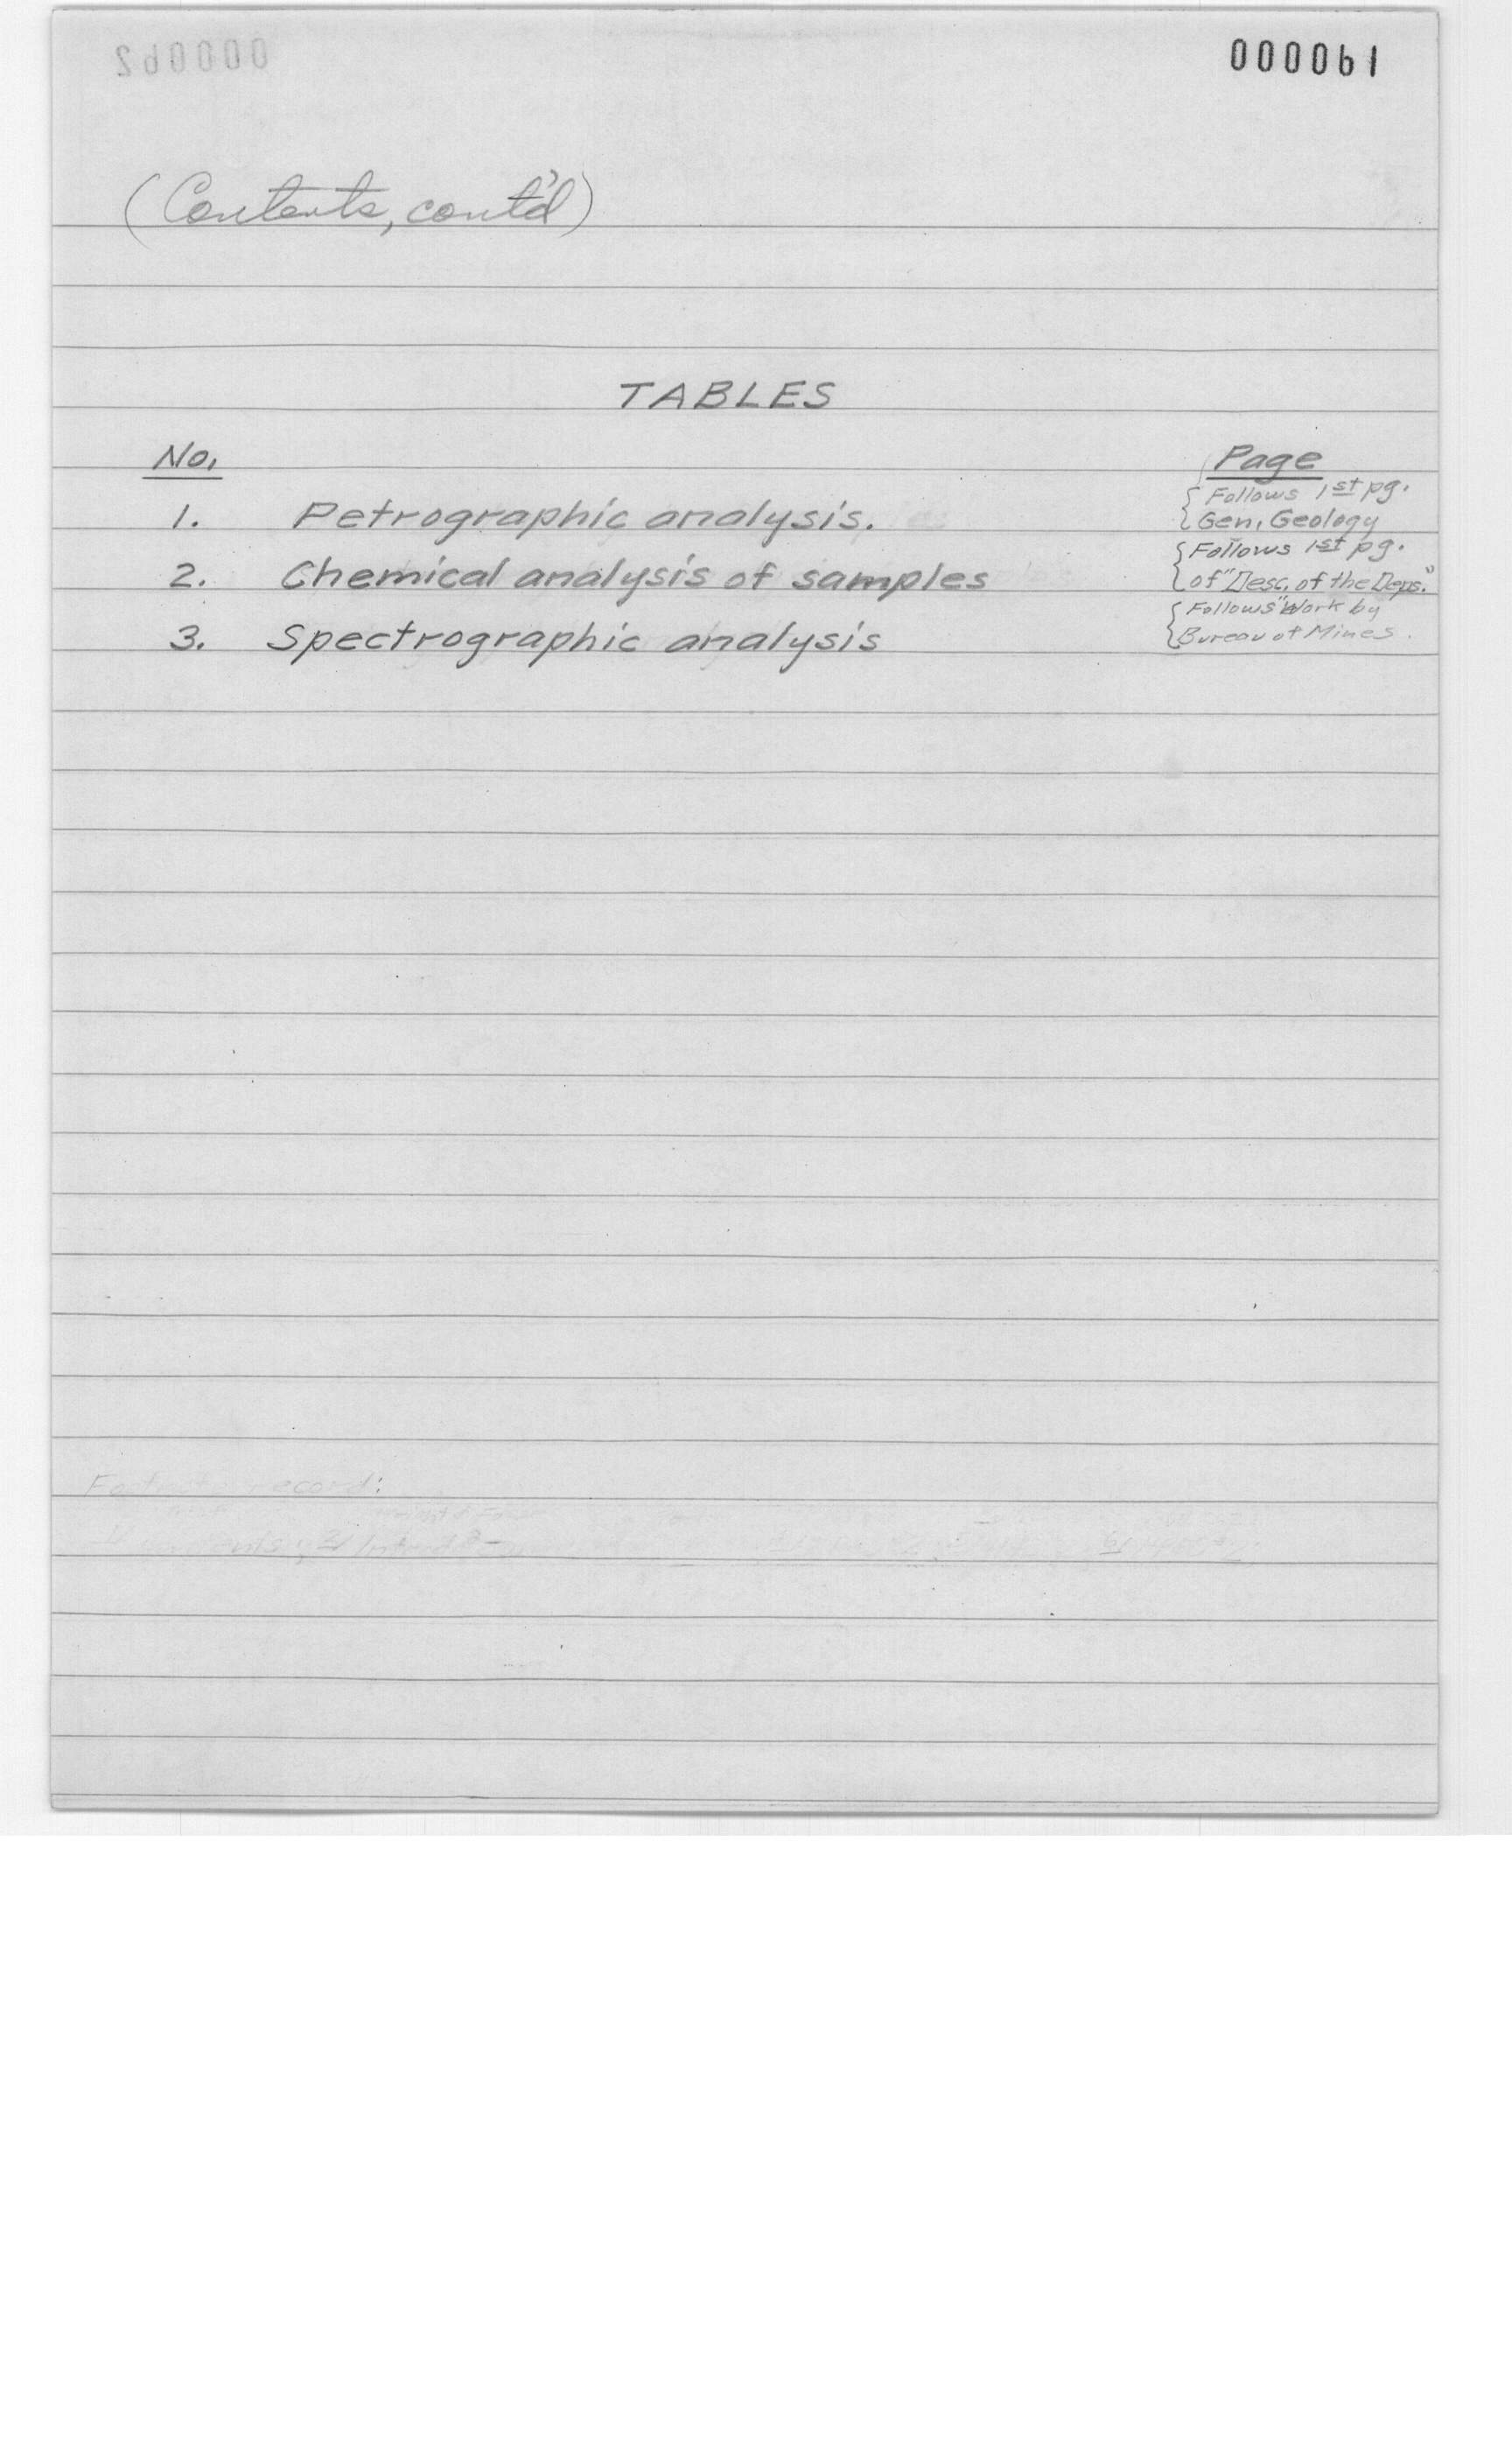 000061
(Contents, cont'd)
TABLES
No. Page
1. Petrographic analysis. {Follows 1st pg.
Gen. Geology
2. Chemical analysis of samples {Follows 1st pg.
of "Desc. of the Deps."
3. Spectrographic analysis {Follows "Work by
Bureau of Mines.